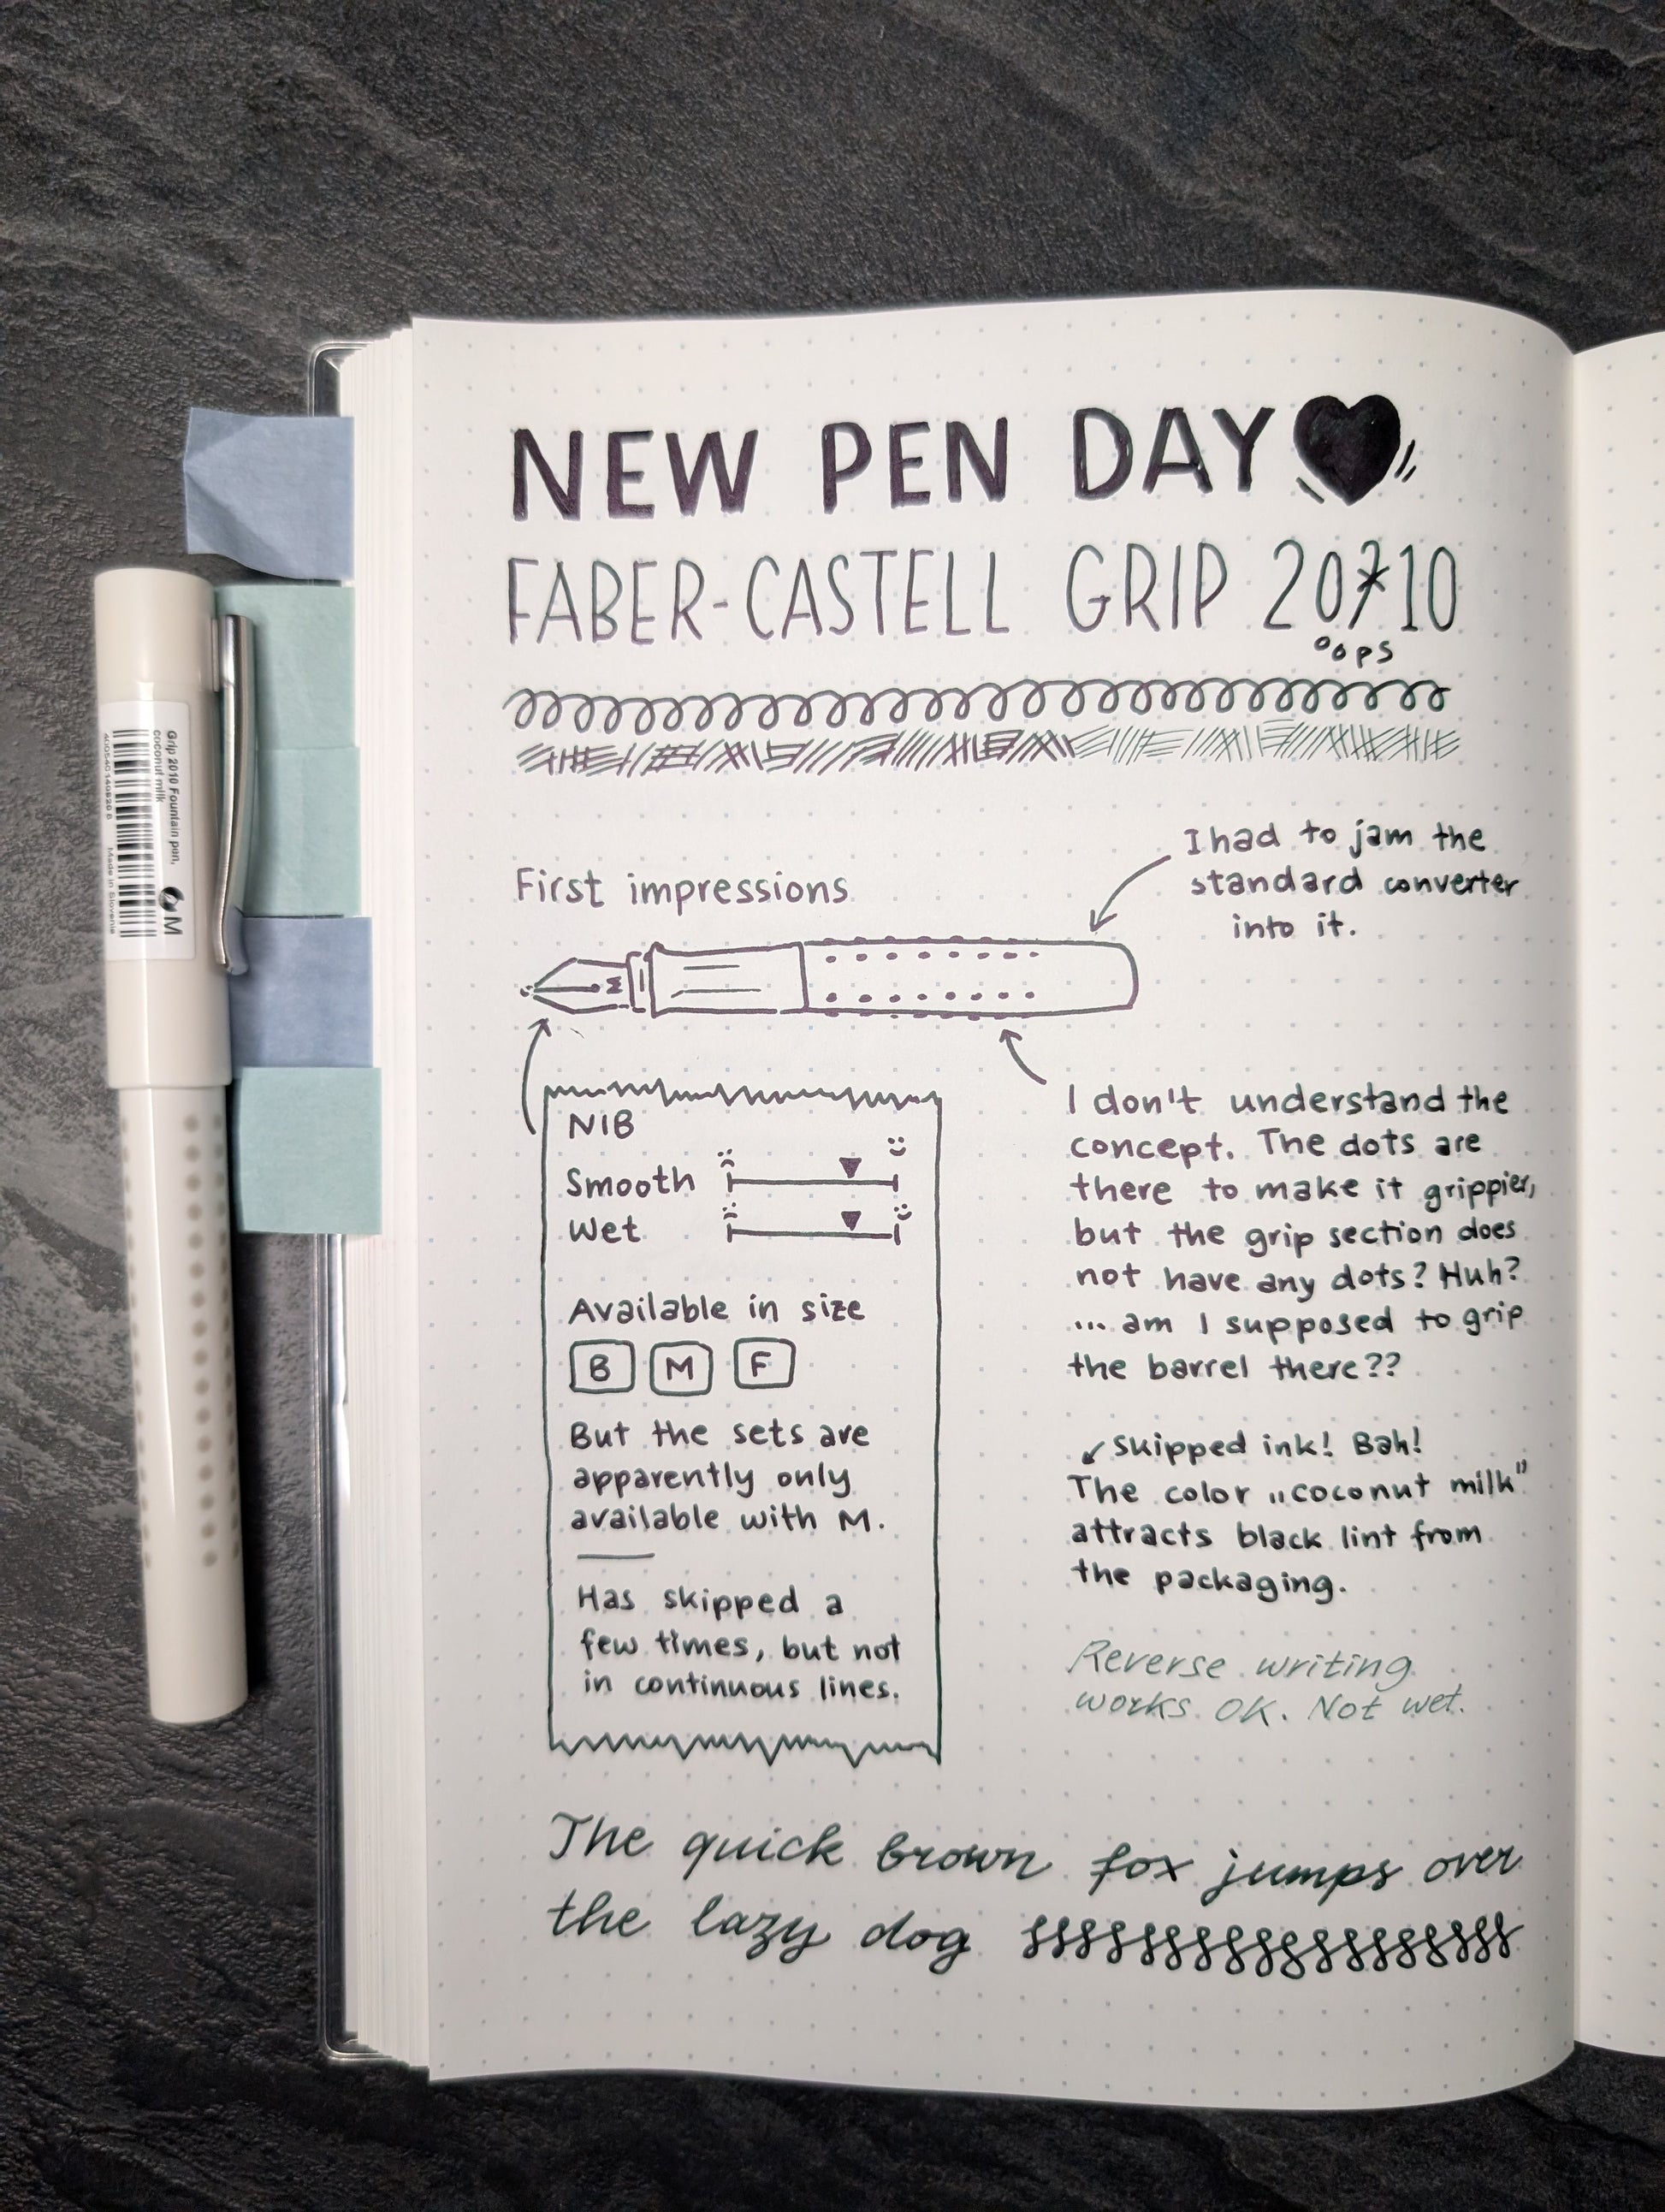 NEW PEN DAY
FABER-CASTELL GRIP 20710
oops
First impressions
I had to jam the
standard converter
into it.
M
NIB
Smooth
Wet
Available in size
B M F
But the sets are
apparently only
available with M.
Has skipped a
few times, but not
in continuous lines.
I don't understand the
concept. The dots are
there to make it grippier,
but the grip section does
not have any dots? Huh?
... am I supposed to grip
the barrel there??
Skipped ink! Bah!
The color „coconut milk”
attracts black lint from
the packaging.
Reverse writing
works OK. Not wet.
The quick brown fox jumps over
the lazy dog
Grip 2010 Fountain pen,
coconut milk
M
Made in Slovenia